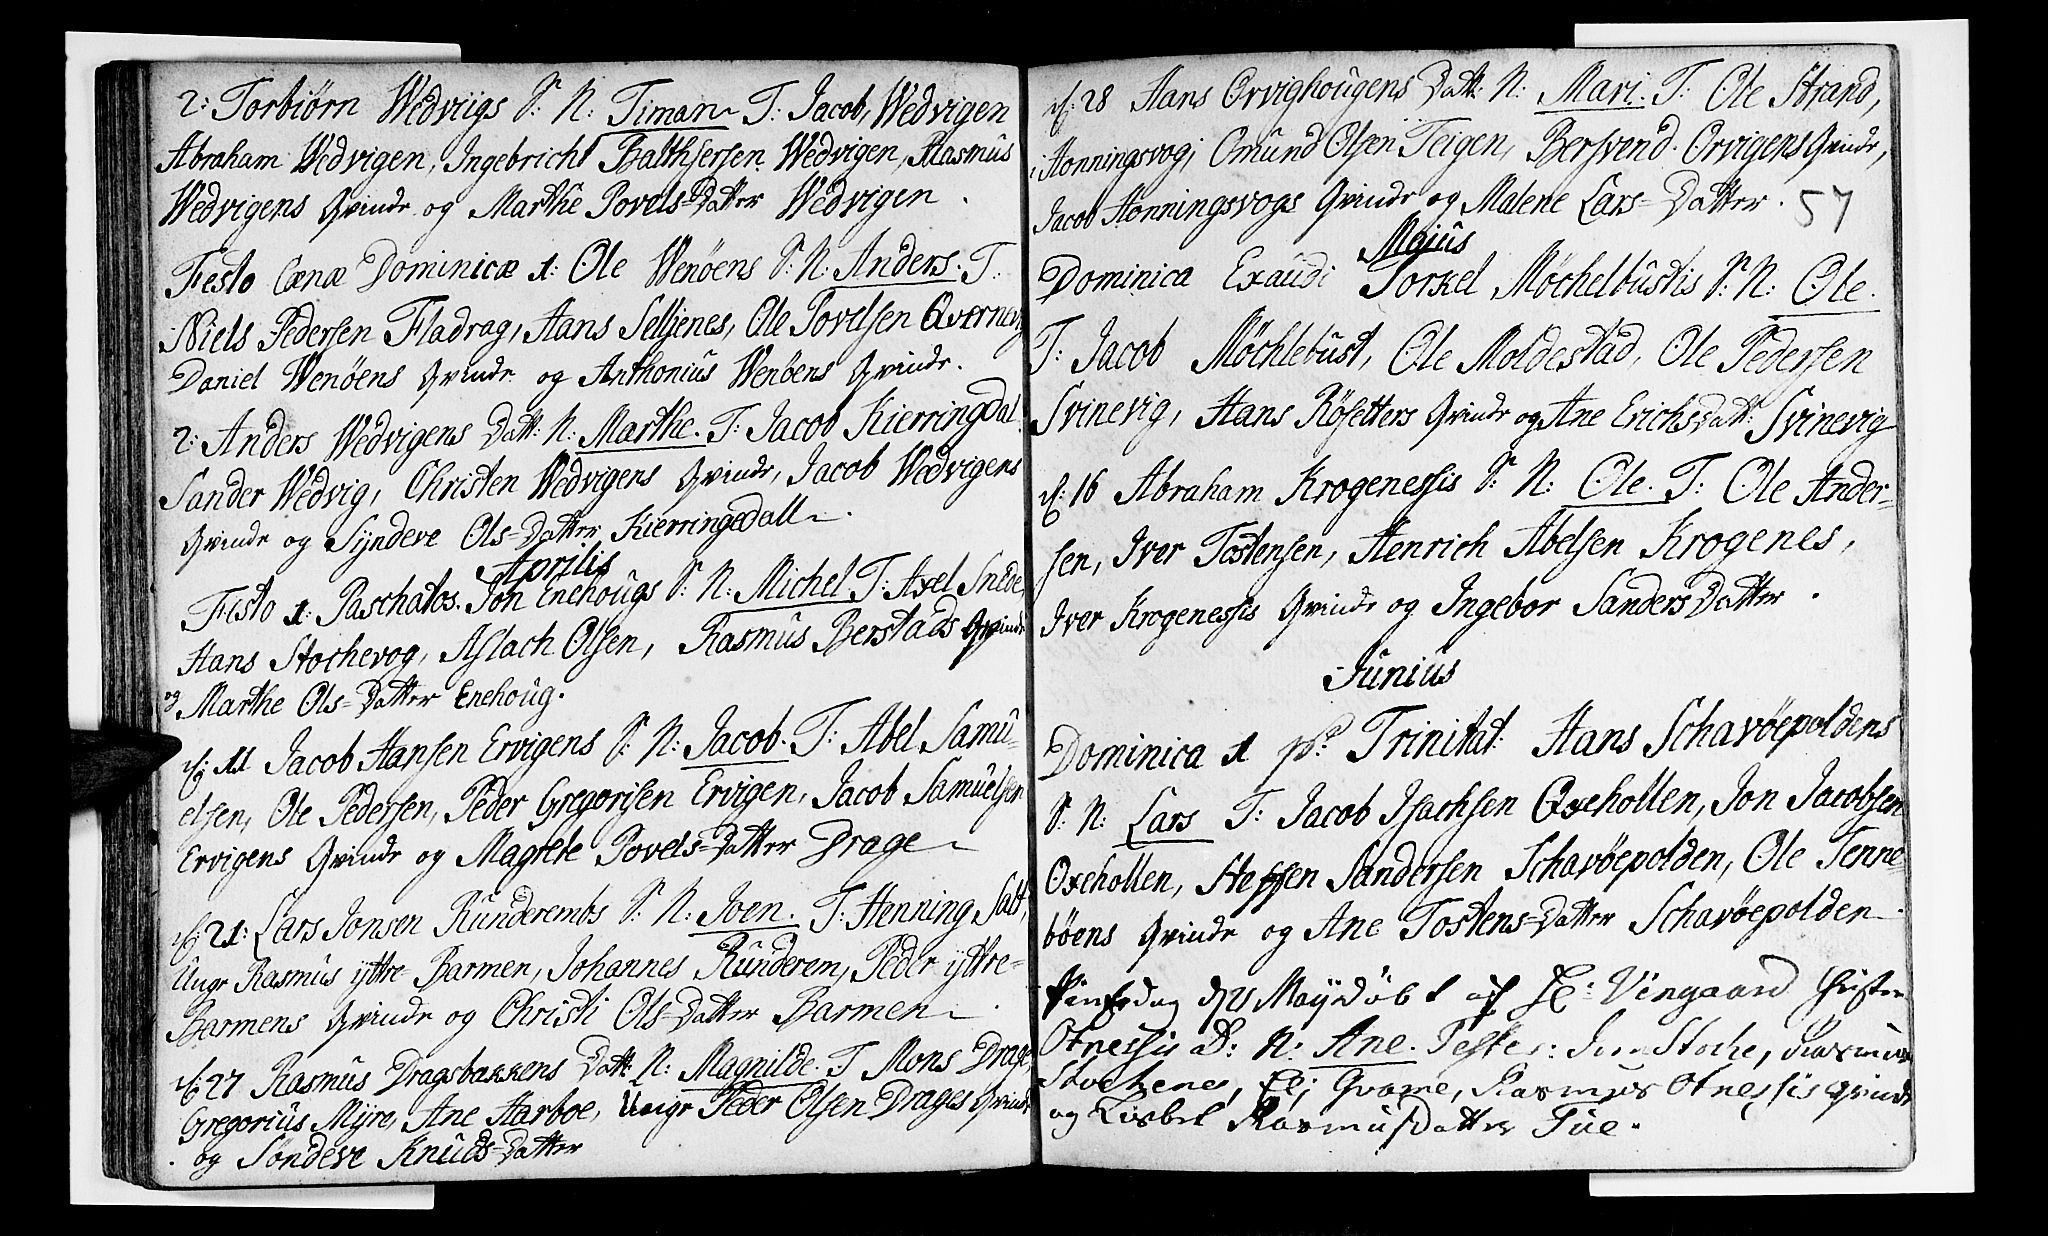 2: Torbiørn Wedviigs S: N: Timan T: Jacob Wedvigen
Abraham Wedvigen, Ingebricht Balthsersen Wedvigen, Rasmus
Wedvigens Qvinde og Marthe Povels-Datter Wedvigen.
Festo Cænæ Dominicæ 1: Ole Wenøens S: N: Anders. T:
Niels Pedersen Fladrag, Hans Selljenes, Ole Povelsen Qvernevig
Daniel Wenøens Qvinde og Anthonius Wenøens Qvinde.
2: Anders Wedvigens Datt: N: Marthe. T: Jacob Kierringdal
Sander Wedvig, Christen Wedvigens Qvinde, Jacob Wedvigens
Qvinde og Syndeve Ols-Datter Kierringedall.
Aprilis
Festo 1: Paschatos. Jon Enehougs S: N: Michel T: Axel Snede,
Hans Stochevog, Aslach Olsen, Rasmus Berstads Qvinde
og Marthe Ols-Datter Enehoug.
d: 11 Jacob Hansen Ervigens S: N: Jacob. T: Abel Samu-
elsen, Ole Pedersen, Peder Gregorisen Ervigen, Jacob Samuelsen
Ervigens Qvinde og Magrete Povels-Datter Drage
d: 21: Lars Jonsen Runderembs S: N: Joen. T: Henning Salt,
Ungr Rasmus yttre Barmen, Johannes Runderem, Peder yttre-
Barmens Qvinde og Christi Ols-Datter Barmen.
d: 27 Rasmus Dragsbakkens Datt: N: Magnilde. T Mons Drage
Gregorius Myre, Ane Aarboe, Ungr Peder Olsen Drages Qvinde
og Søndeve Knuds-Datter
d: 28 Hans Orvighougens Datt: N: Mari. T: Ole Strand,
i Honningsvog; Omund Olsen Teigen, Bersvend Orvigens Qvinde,
Jacob Honningsvogs Qvinde og Malene Lars-Datter. 57
Majus
Dominica Exaudi Torkel Møchelbustis S: N: Ole.
T: Jacob Møchlebust, Ole Moldestad, Ole Pedersen
Svinevig, Hans Røsetters Qvinde og Ane Erichs Datt: Svinevig
d: 16 Abraham Krogenessis S: N: Ole. T: Ole Ander-
sen, Iver Tostensen, Henrich Abelsen Krogenes,
Iver Krogenessis Qvinde og Ingebor Sanders Datter.
Junius
Dominica 1 p: Trinitat: Hans Schavøepoldens
S: N: Lars T: Jacob Isachsen Oxehollen, Jon Jacobsen
Oxehollen, Steffen Sandersen Schavøepolden, Ole Tenne-
bøens Qvinde og Ane Tostens-Datter Schavøepolden.
Maij døbt af Hr: Vingaard
Otnessis D: N: Ane. Testes: Stoche, Rasmus
Qvame, Rasmus Otnessis Qvinde
og Lisbet Rasmusdatter Tue.